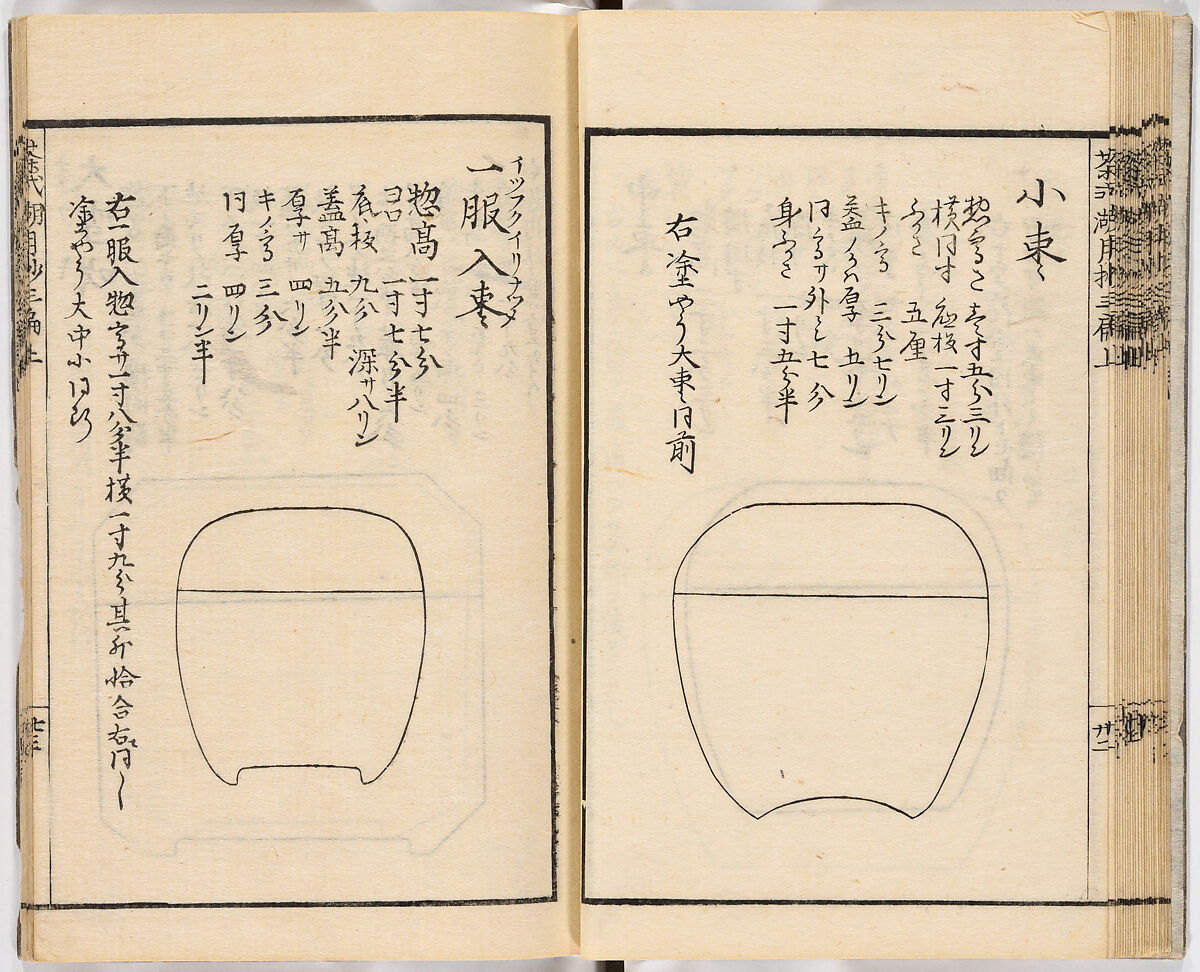 茶式湖月抄三編上
廿二
小棗
惣高さ 壱寸五分三リン
横同寸 底板一寸三リン
ふかさ 五厘
キノ高 三分七リン
同高サ外ミ七分
身ふかさ 一寸五分半
右塗やう大棗同前
イツフクイリナツメ
一服入棗
惣高 一寸七分
ヨコ 一寸七分半
底板 九分 深サ八リン
蓋高 五分半
厚サ 四リン
キノ高 三分
同厚 四リン
二リン半
右一服入惣高サ一寸八分半横一寸九分其外恰合右ニ同し
塗やう大中小同断
茶式湖月抄三編上
廿三